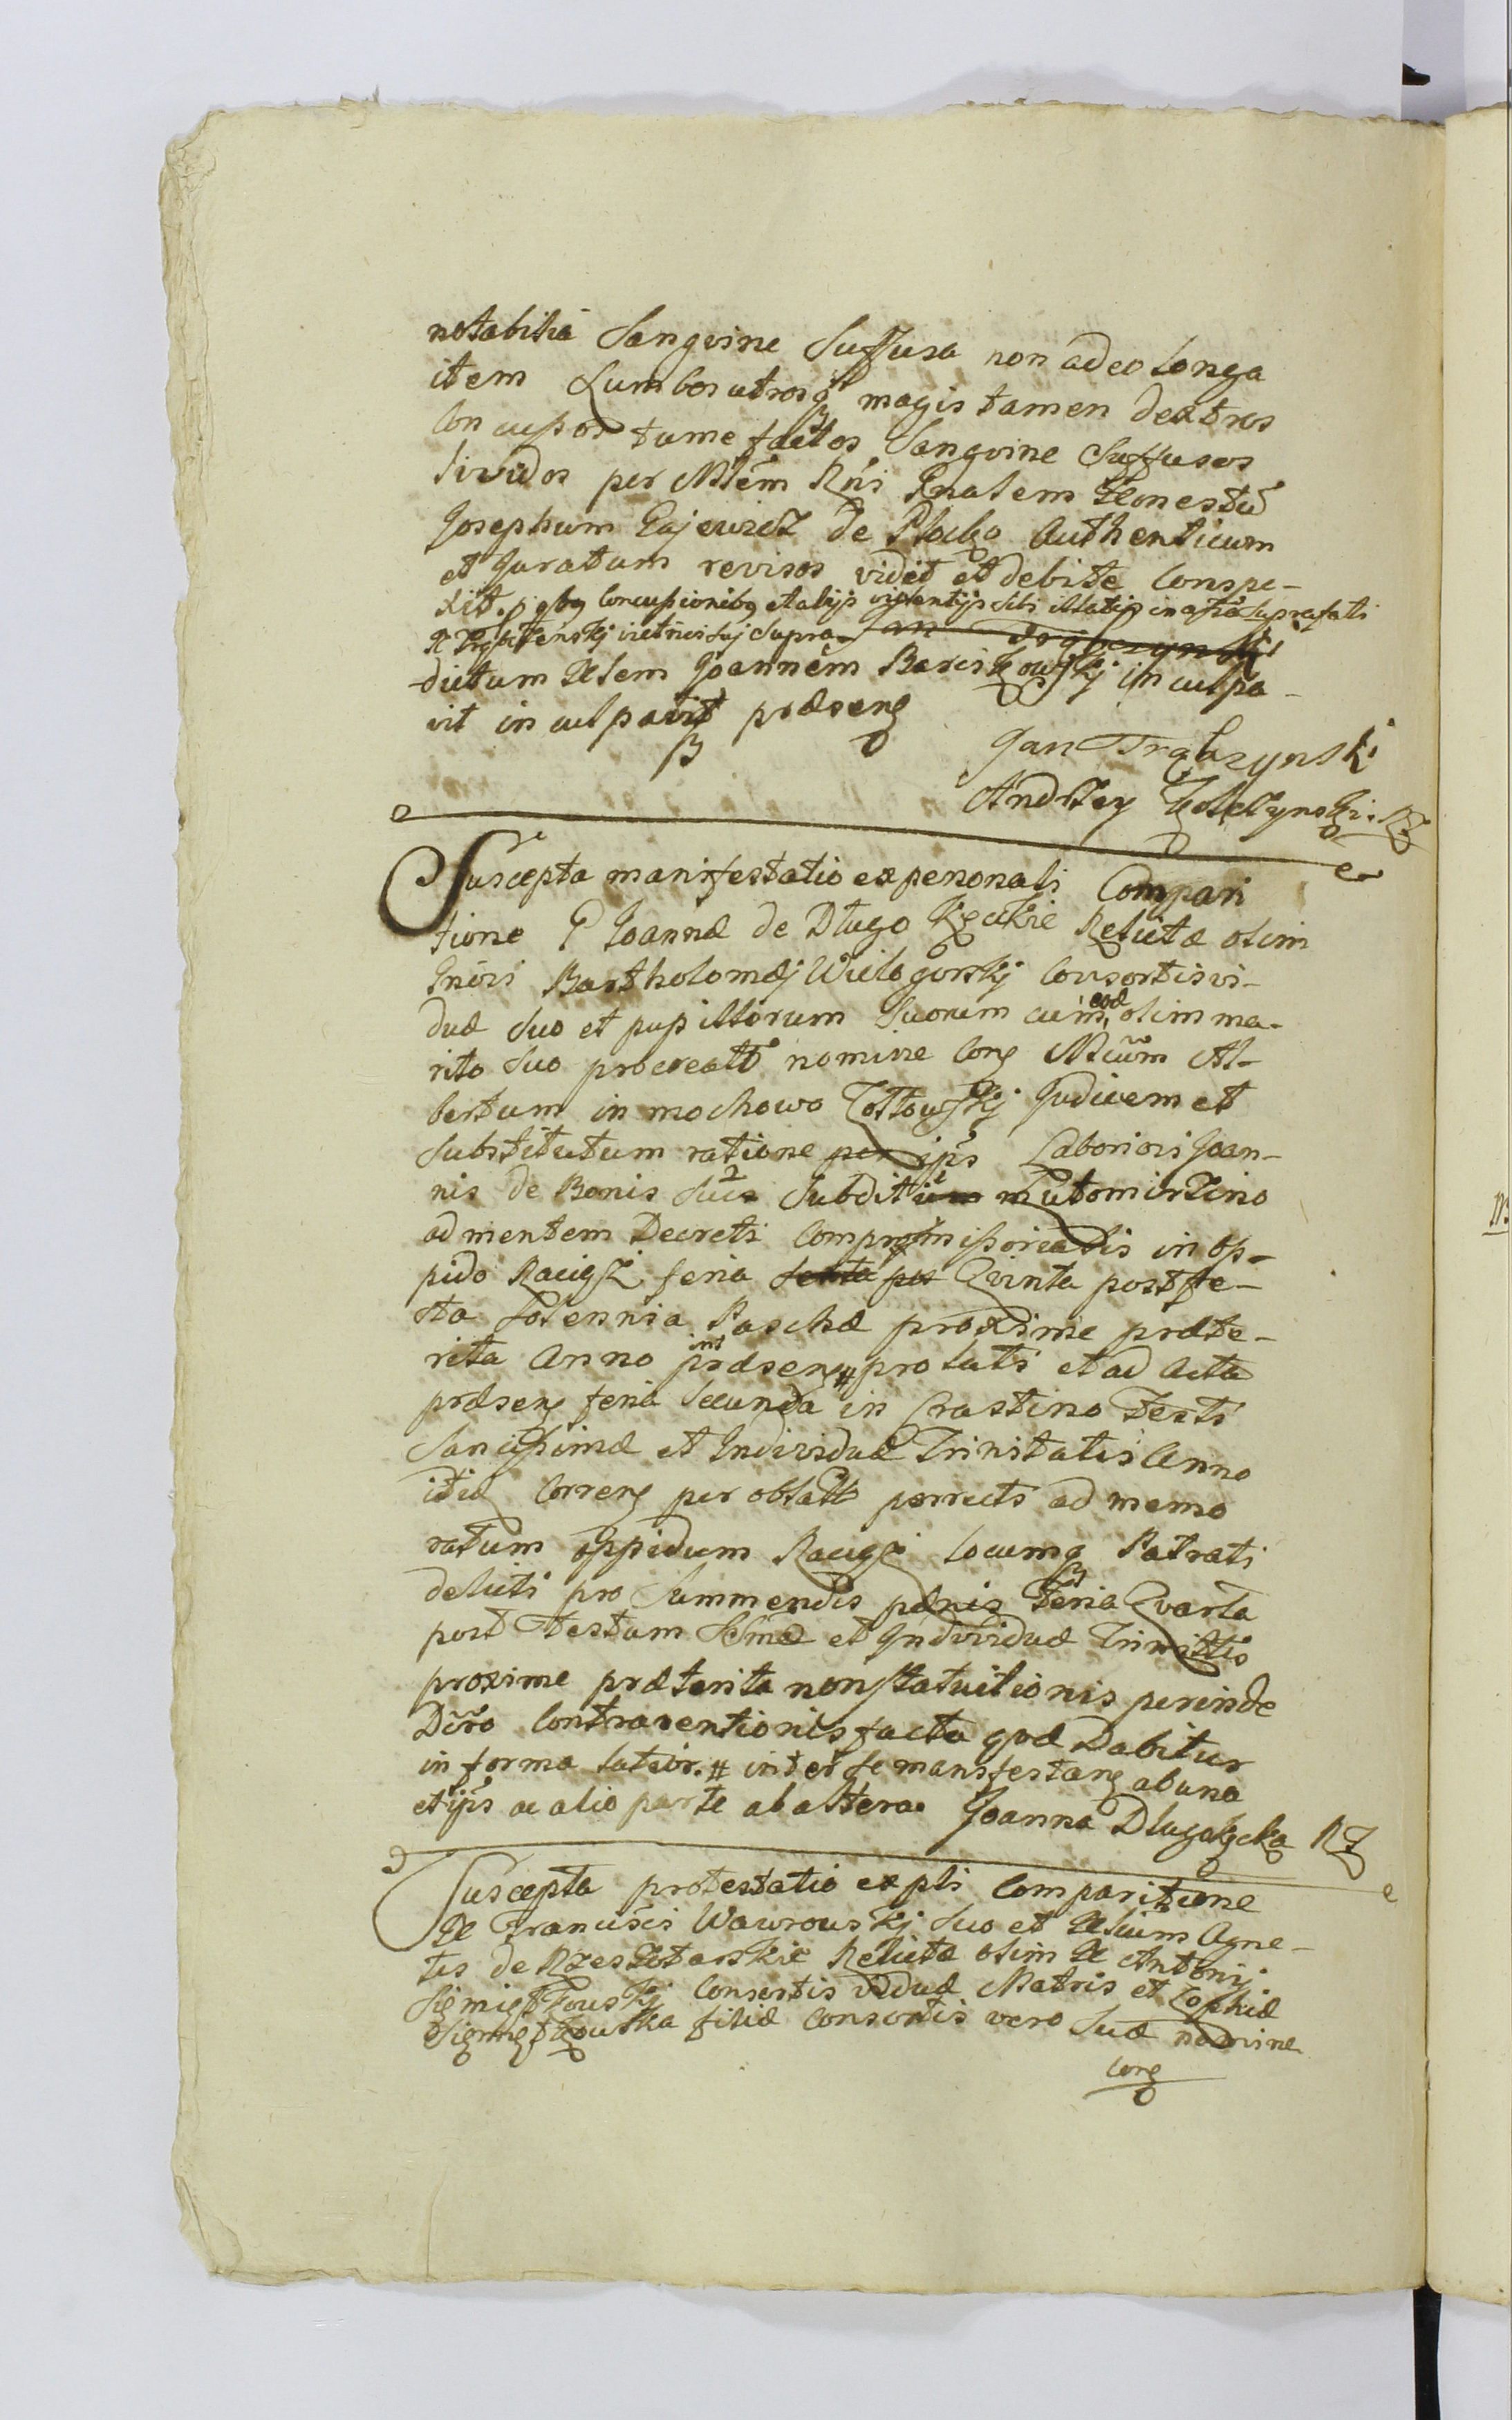 notabilia Sangvine Suffusa non adeo longa
item Lumbos utrosq magis tamen dextros
Concussos tumefactos Sangvine Suffusos
lividos per Mlem Rni Gnalem Honestu
Josephum Gajewicz de Plocko Authenticum
et Juratum revisos vidit et debite Conspe-
xit. p qbg Concussionibg et alijs violentijs Sibi illatis suprafati
vietrici suj Supra- Jan Trąbczynski
-dictum Joannem Bariszowskj inculpa-
vit inculpavitq præseng
Jan Trąbczynski
Andrzey RZ
Suscepta manifestatio ex personali Compari
tione G Joannæ de Długo Kęckie Relictæ olim
Gnosi Bartholomæj Wielogorskj Consortis vi-
duæ Suo et pupillorum Suorum cum eod olim ma-
rito Suo procreatt nomine Cong Mcum Al-
bertum in mochowo Zottowskj Judicem et
Substitutum ratione per ipis Laboriosi Joan-
nis de Bonis Suis Subditi Lutomirzino
ad mentem Decreti Compromissorialis in op-
pido Raciąz feria sexta pos Qvinta post fe-
sta Solennia Paschæ proxime præte-
rita Anno int præseng # prolati et ad Acta
præseng feria Secunda in Crastino Festi
Sancissimæ et Individuæ Trinitatis Anno
itid Correng per oblatt porrecti ad memo
ratum oppidum Raciąz locumq Patrati
delicti pro Summendis pænis Feria Qvarta
post Festum Ssmæ et Individuæ Trinittis
proxime præterita non Statuitionis perinde
Dcro Contraventionis facta qvæ Dabitur
in forma latiòr. # inter se manifestang ab una
et ipis ac alio parte ab altera. Joanna Dlugokęcka RZ
Suscepta protestatio ex pli Comparitione
Francisci Wawrowskj Suo et Agne-
tis de Rzeszotarskie Relictæ olim Antonij
Siemiątkowskj Consortis viduæ Matris et Zophiæ
Siemiątkowska filiæ Consortis vero Suæ nomine
Cong